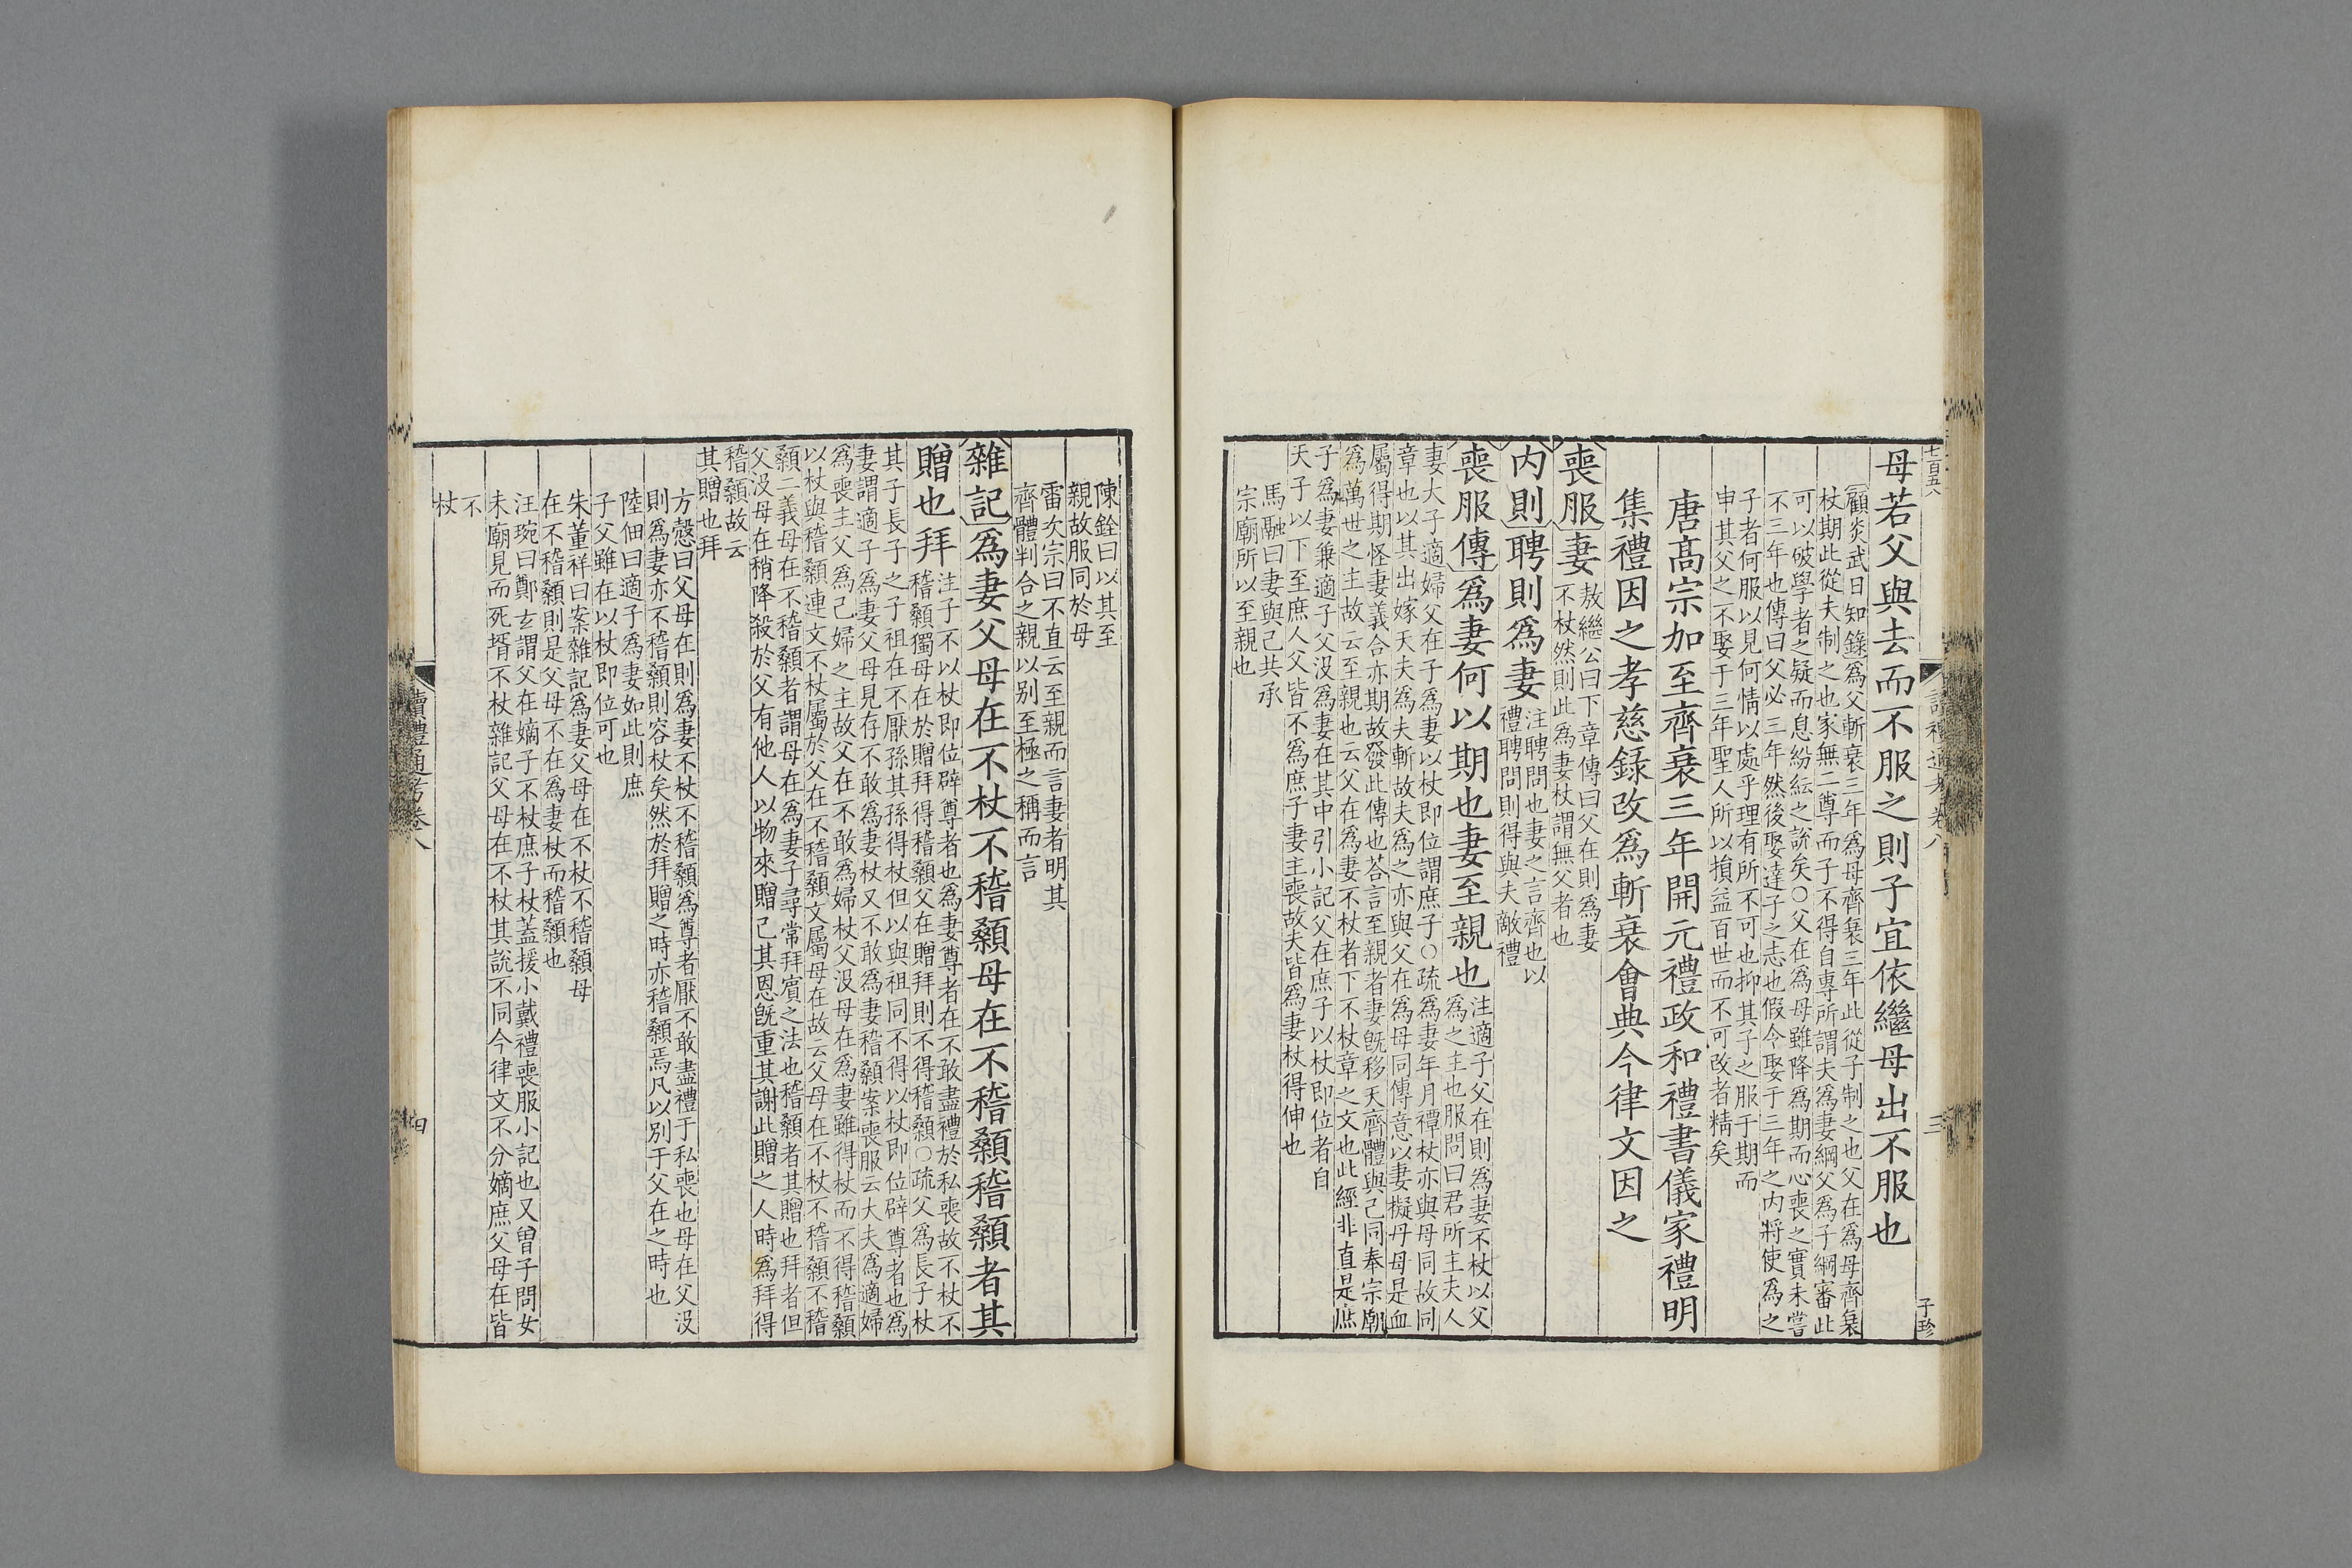 七百五八
讀禮通考卷八
三
子珍
母若父與去而不服之則子宜依繼母出不服也
顧炎武日知錄爲父斬衰三年爲母齊衰三年此從子制之也父在爲母齊衰
杖期此從夫制之也家無二尊而子不得自專所謂夫爲妻綱父爲子綱審此
可以破學者之疑而息紛紜之說矣○父在爲母雖降爲期而心喪之實未嘗
不三年也傳曰父必三年然後娶達子之志也假令娶于三年之内將使爲之
子者何服以見何情以處乎理有所不可也抑其子之服于期而
申其父之不娶于三年聖人所以損益百世而不可改者精矣
唐髙宗加至齊衰三年開元禮政和禮書儀家禮明
集禮因之孝慈錄改爲斬衰會典今律文因之
喪服妻
敖繼公曰下章傳曰父在則爲妻
不杖然則此爲妻杖謂無父者也
内則聘則爲妻
注聘問也妻之言齊也以
禮聘問則得與夫敵禮
喪服傳爲妻何以期也妻至親也
注適子父在則爲妻不杖以父
爲之主也服問曰君所主夫人
妻大子適婦父在子爲妻以杖即位謂庶子○疏爲妻年月禫杖亦與母同故同
章也以其出嫁天夫爲夫斬故夫爲之亦與父在爲母同傳意以妻擬丹母是血
屬得期怪妻義合亦期故發此傳也荅言至親者妻旣移天齊體與己同奉宗廟
爲萬世之主故云至親也云父在爲妻不杖者下不杖章之文也此經非直是庶
子爲妻兼適子父没爲妻在其中引小記父在庶子以杖即位者自
天子以下至庶人父皆不爲庶子妻主喪故夫皆爲妻杖得伸也
馬融曰妻與己共承
宗廟所以至親也
陳銓曰以其至
親故服同於母
雷次宗曰不直云至親而言妻者明其
齊體判合之親以别至極之稱而言
雜記爲妻父母在不杖不稽顙母在不稽顙稽顙者其
贈也拜
注子不以杖即位辟尊者也爲妻尊者在不敢盡禮於私喪故不杖不
稽顙獨母在於贈拜得稽顙父在贈拜則不得稽顙○疏父爲長子杖
其子長子之子祖在不厭孫其孫得杖但以與祖同不得以杖即位辟尊者也爲
妻謂適子爲妻父母見存不敢爲妻杖又不敢爲妻稽顙案喪服云大夫爲適婦
爲喪主父爲己婦之主故父在不敢爲婦杖父没母在爲妻雖得杖而不得稽顙
以杖與稽顙連文不杖屬於父在不稽顙文屬母在故云父母在不杖不稽顙不稽
顙二義母在不稽顙者謂母在爲妻子尋常拜賓之法也稽顙者其贈也拜者但
父没母在稍降殺於父有他人以物來贈己其恩旣重其謝此贈之人時爲拜得
稽顙故云
其贈也拜
方愨曰父母在則爲妻不杖不稽顙爲尊者厭不敢盡禮于私喪也母在父没
則爲妻亦不稽顙則容杖矣然於拜贈之時亦稽顙焉凡以别于父在之時也
陸佃曰適子爲妻如此則庶
子父雖在以杖即位可也
朱董祥曰案雜記爲妻父母在不杖不稽顙母
在不稽顙則是父母不在爲妻杖而稽顙也
汪琬曰鄭玄謂父在嫡子不杖庶子杖葢援小戴禮喪服小記也又曽子問女
未廟見而死壻不杖雜記父母在不杖其說不同今律文不分嫡庶父母在皆
不
杖
讀禮通考卷八
四